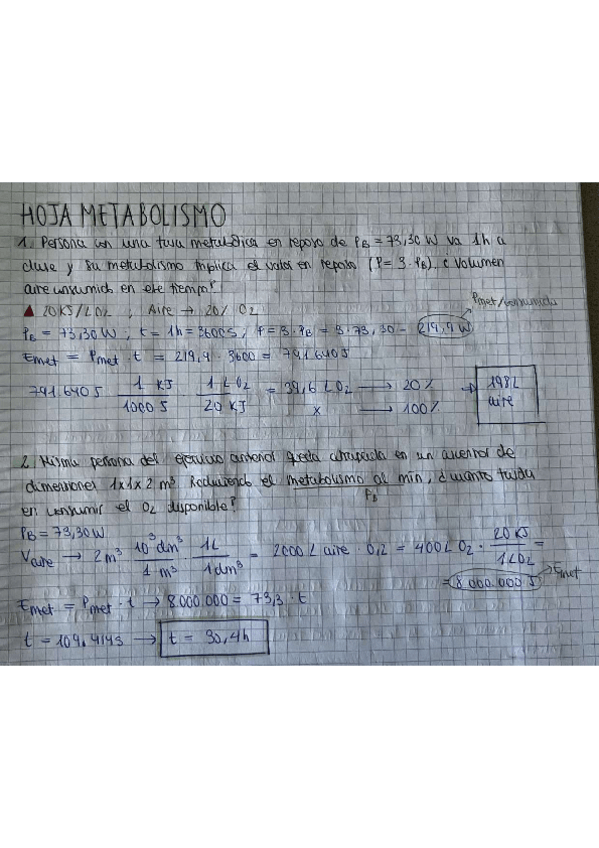 HOJA METABOLISMO
1. Persona con una tasa metabólica en reposo de PB = 73,30 W va 1h a
clase y su metabolismo triplica el valor en reposo (P = 3·PB), ¿ Volumen
aire consumido en ese tiempo?
▲ 20 KJ/1 LO2 ; Aire → 20% O2
Pmet/consumida
PB = 73,30 W ; t = 1h = 3600 S ; P = 3·PB = 3·73,30 = 219,9 W
Emet = Pmet · t = 219,9 · 3600 = 791.640 J
791.640 J · 1 KJ / 1000 J · 1 L O2 / 20 KJ = 39,6 L O2 → 20% → 198 L aire
x → 100%
2. Misma persona del ejercicio anterior queda atrapada en un ascensor de
dimensiones 1x1x2 m³. Reduciendo el metabolismo al mín, ¿cuánto tarda
PB
en consumir el O2 disponible?
PB = 73,30 W
Vaire → 2 m³ · 10³ dm³ / 1 m³ · 1L / 1 dm³ = 2000 L aire · 0,2 = 400 L O2 · 20 KJ / 1 LO2 =
= 8.000.000 J → Emet
Emet = Pmet · t → 8.000.000 = 73,3 · t
t = 109.414 S → t = 30,4 h